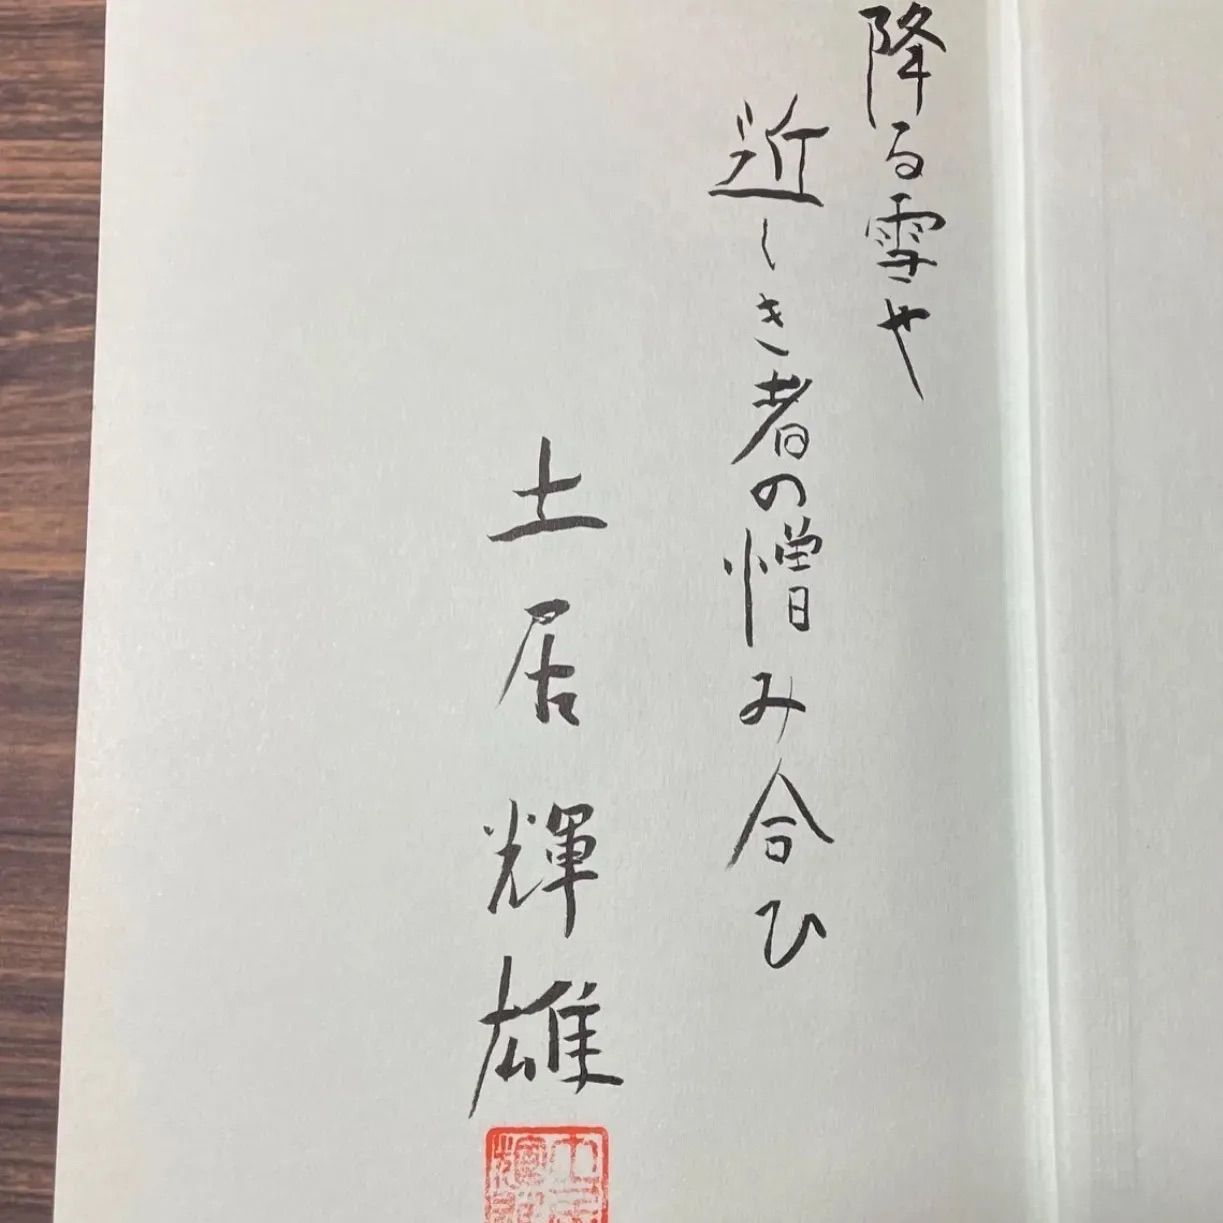 降る雪や
近しき者の憎み合ひ
土居輝雄